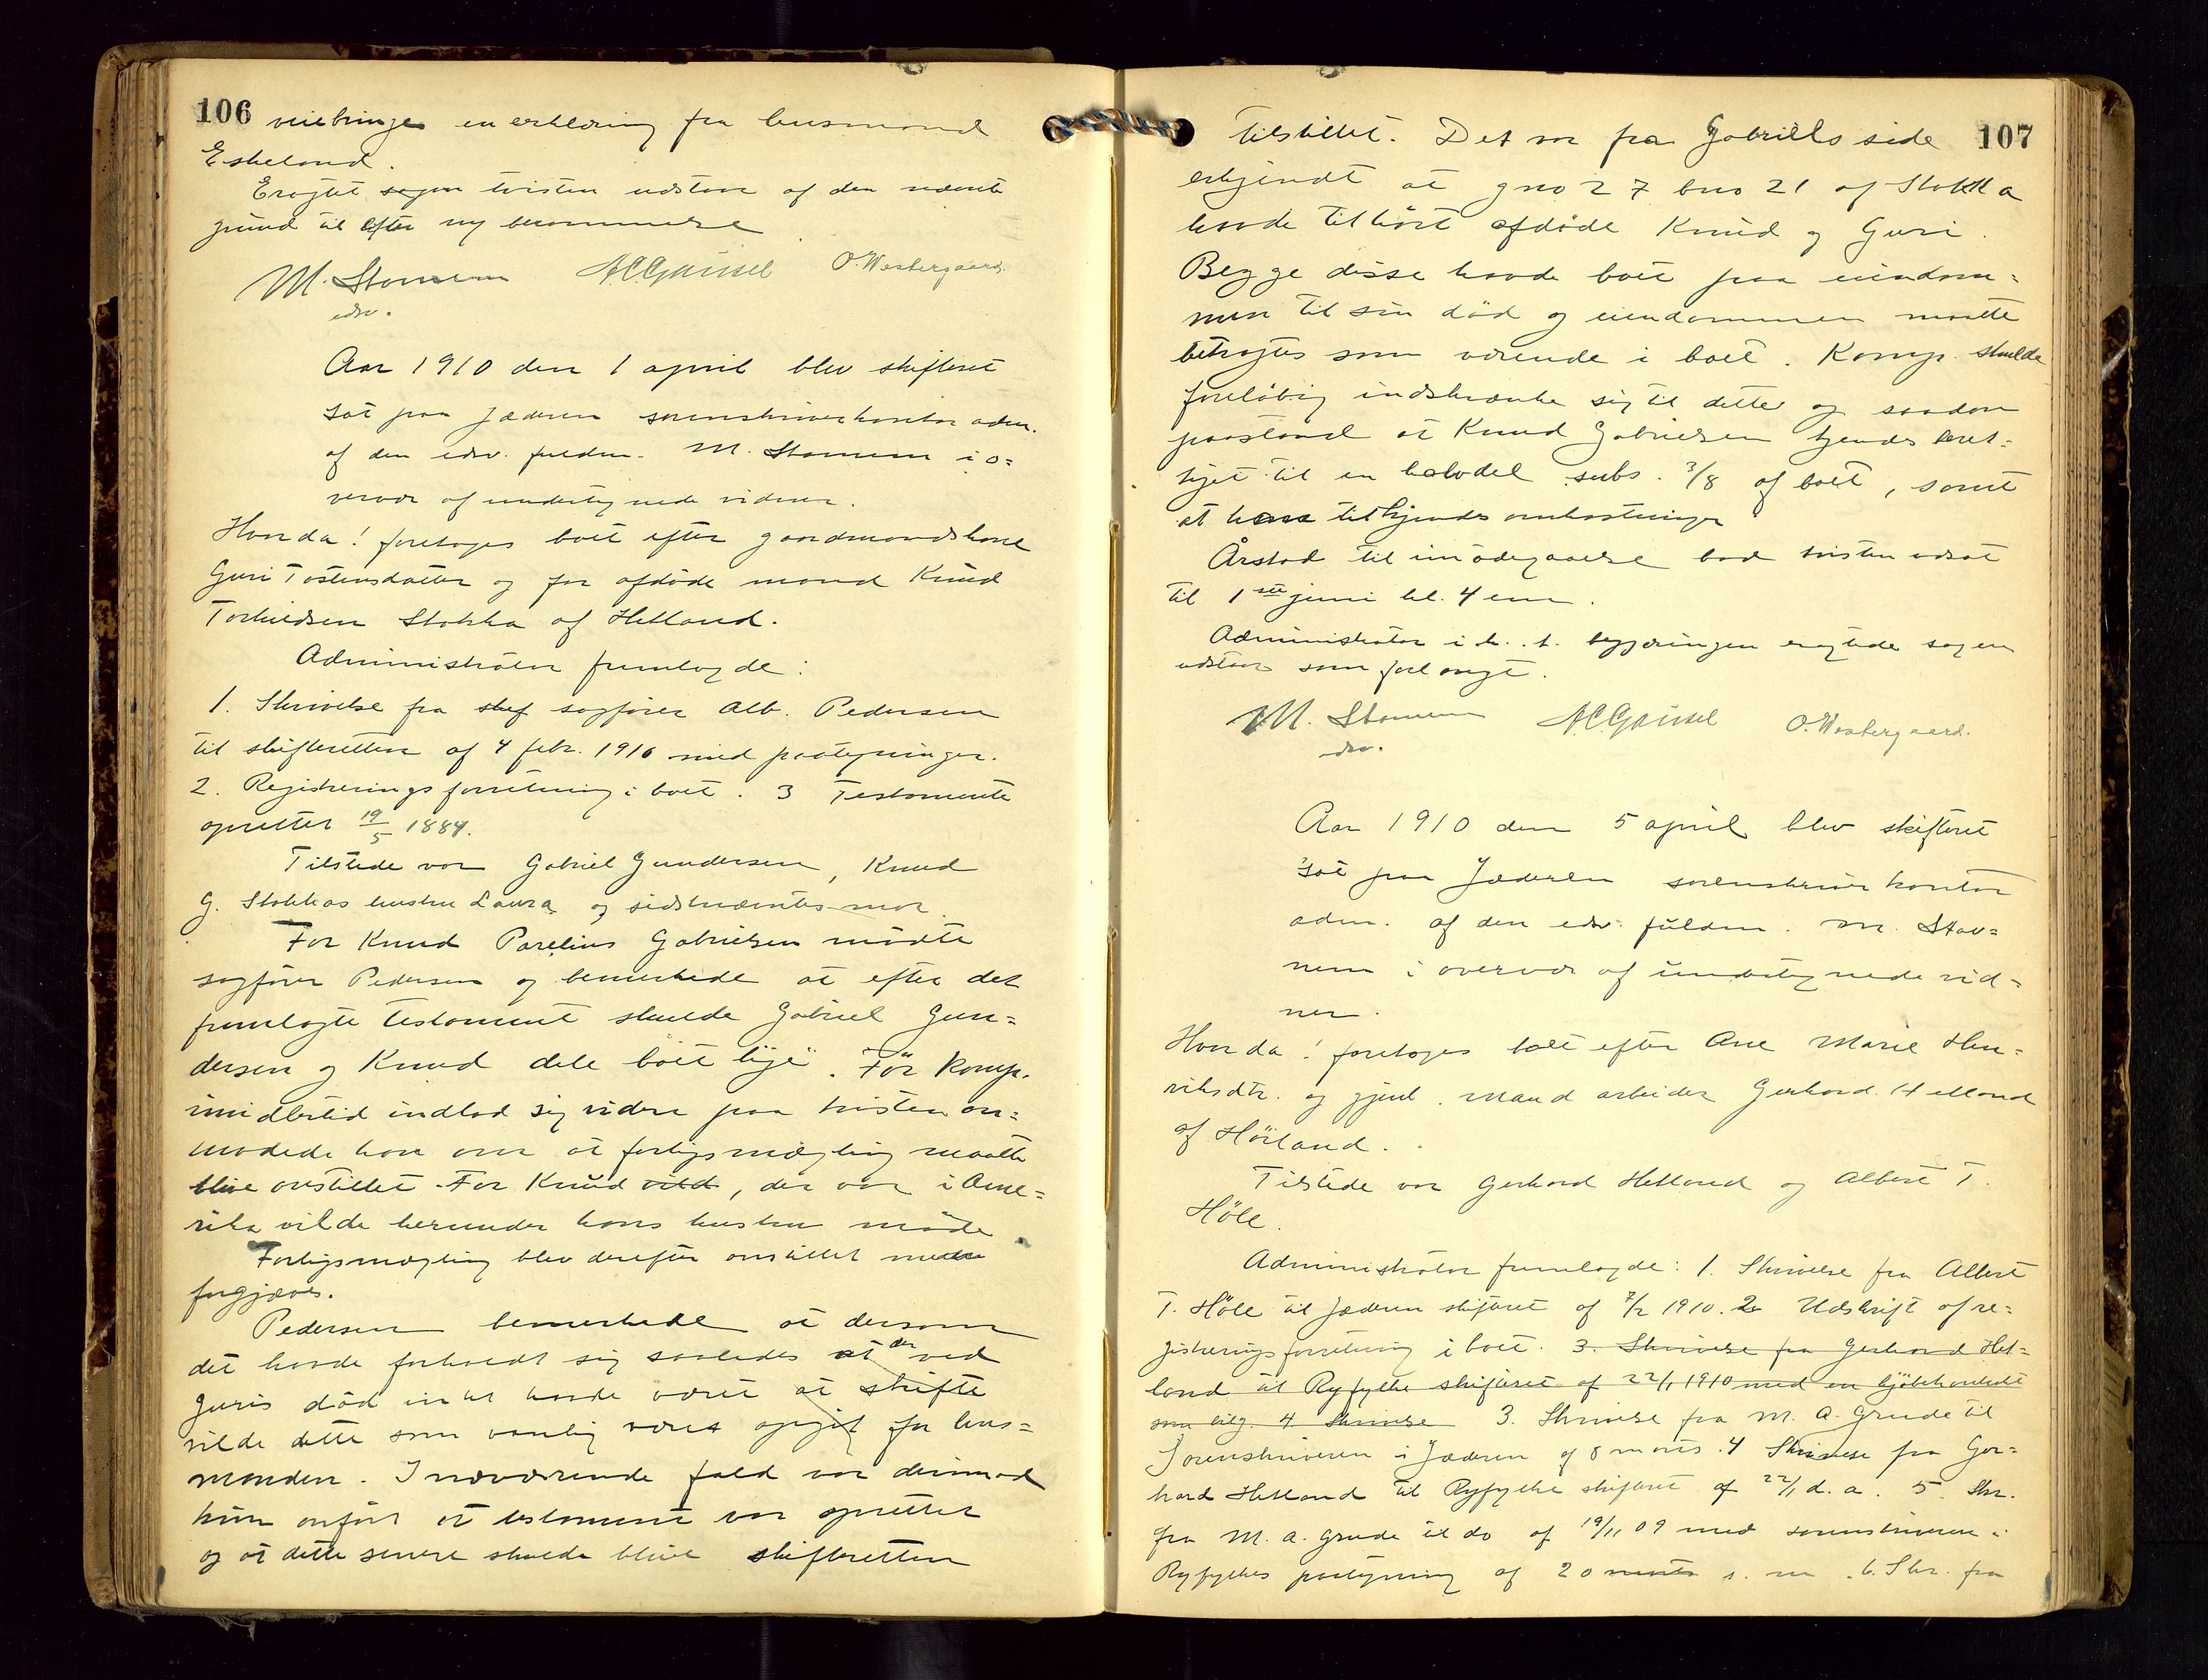 106
veiebringe en erklæring fra lensmand
Eskeland.
Eragtet sagen tvisten udstaar af den nævnte
grund til efter ny berammelse
M. Stavnem A.C.Gausel O.Westergaard.
edsv.
Aar 1910 den 1 april blev skifteret
sat paa Jæderen sorenskriverkontor adm.
af den edsv. fuldm. M. Stavnem i o=
vervær af undertegnede vidner.
Hvorda! foretoges boet efter gaardmandskone
Guri Tostensdatter og før afdøde mand Knud
Torkildsen Stokka af Hetland.
Administrator fremlagde:
1. Skrivelse fra skif sagfører Alb. Pedersen
til skifteretten af 4 febr. 1910 med paategninger.
2. Registreringsforretning i boet. 3 Testamente
oprettet 19/5 1884.
Tilstede var Gabriel Gundersen, Knud
G. Stokkas hustru Laura og sidstnævntes mor.
For Knud Parelius Gabrielsen mødte
sagfører Pedersen og bemerkede at efter det
fremlagte testament skulde Gabriel Gun=
dersen og Knud dele boet lige. Før komp.
imidlertid indlod sig videre paa tvisten an=
modede han om at forligsmægling maatte
blive anstillet. For Knud vild, der var i Ame=
rika vilde herunder hans hustru møde.
Forligsmægling blev derefter anstillet men
forgjæves.
Pedersen bemerkede at dersom
det havde forholdt sig saaledes at der ved
Guris død intet havde været at skifte
vilde dette som vanlig været opgit for lens=
manden. I nærværende fald var derimod
kun anført at testament var oprettet
og at dette senere skulde blive skifteretten
107
tilstillet. Det var fra Gabriels side
erkjendt at gno 27 bno 21 af Stokka
havde tilhørt afdøde Knud og Guri.
Begge disse havde boet paa eiendom=
men til sin død og eiendommen maatte
betragtes som værende i boet. Komp. skulde
foreløbig indskrænke sig til dette og saadan
paastand at Knud Gabrielsen kjendes beret=
tiget til en halvdel subs. 3/8 af boet, samt
at han tilkjendes omkostninger
Årstad til imødegaaelse bad tvisten udsat
til 1ste juni kl. 4 em.
Administrator i h. t. begjæringen eragtede sagen
udstaar som forlangt.
M. Stavnem A.C.Gausel O.Westergaard.
edsv.
Aar 1910 den 5 april blev skifteret
sat paa Jæderen sorenskriverkontor
adm. af den edsv. fuldm. M. Stav=
nem i overvær af undertegnede vid=
ner.
Hvorda! foretoges boet efter Ane Marie Hen=
riksdtr. og gjenl. mand arbeider Gerhard Hetland
af Høiland.
Tilstede var Gerhard Hetland og Albert T.
Høle.
Administrator fremlagde: 1. Skrivelse fra Albert
T. Høle til Jæderen skifteret af 7/2 1910. 2. Udskrift af re=
gistreringsforretning i boet. 3. Skrivelse fra Gerhard Het=
land til Ryfylke skifteret af 22/1 1910 med en kjøbekontrakt
som bilag. 4. Skrivelse 3. Skrivelse fra M. A. Grude til
Sorenskriveren i Jæderen af 8 marts. 4 Skrivelse fra Ger=
hard Hetland til Ryfylke skifteret af 22/1 d. a. 5. Skr.
fra M. A. Grude til do af 19/11 09 med sorenskriveren i
Ryfylkes paategning af 20 marts s. m. 6. Skr. fra